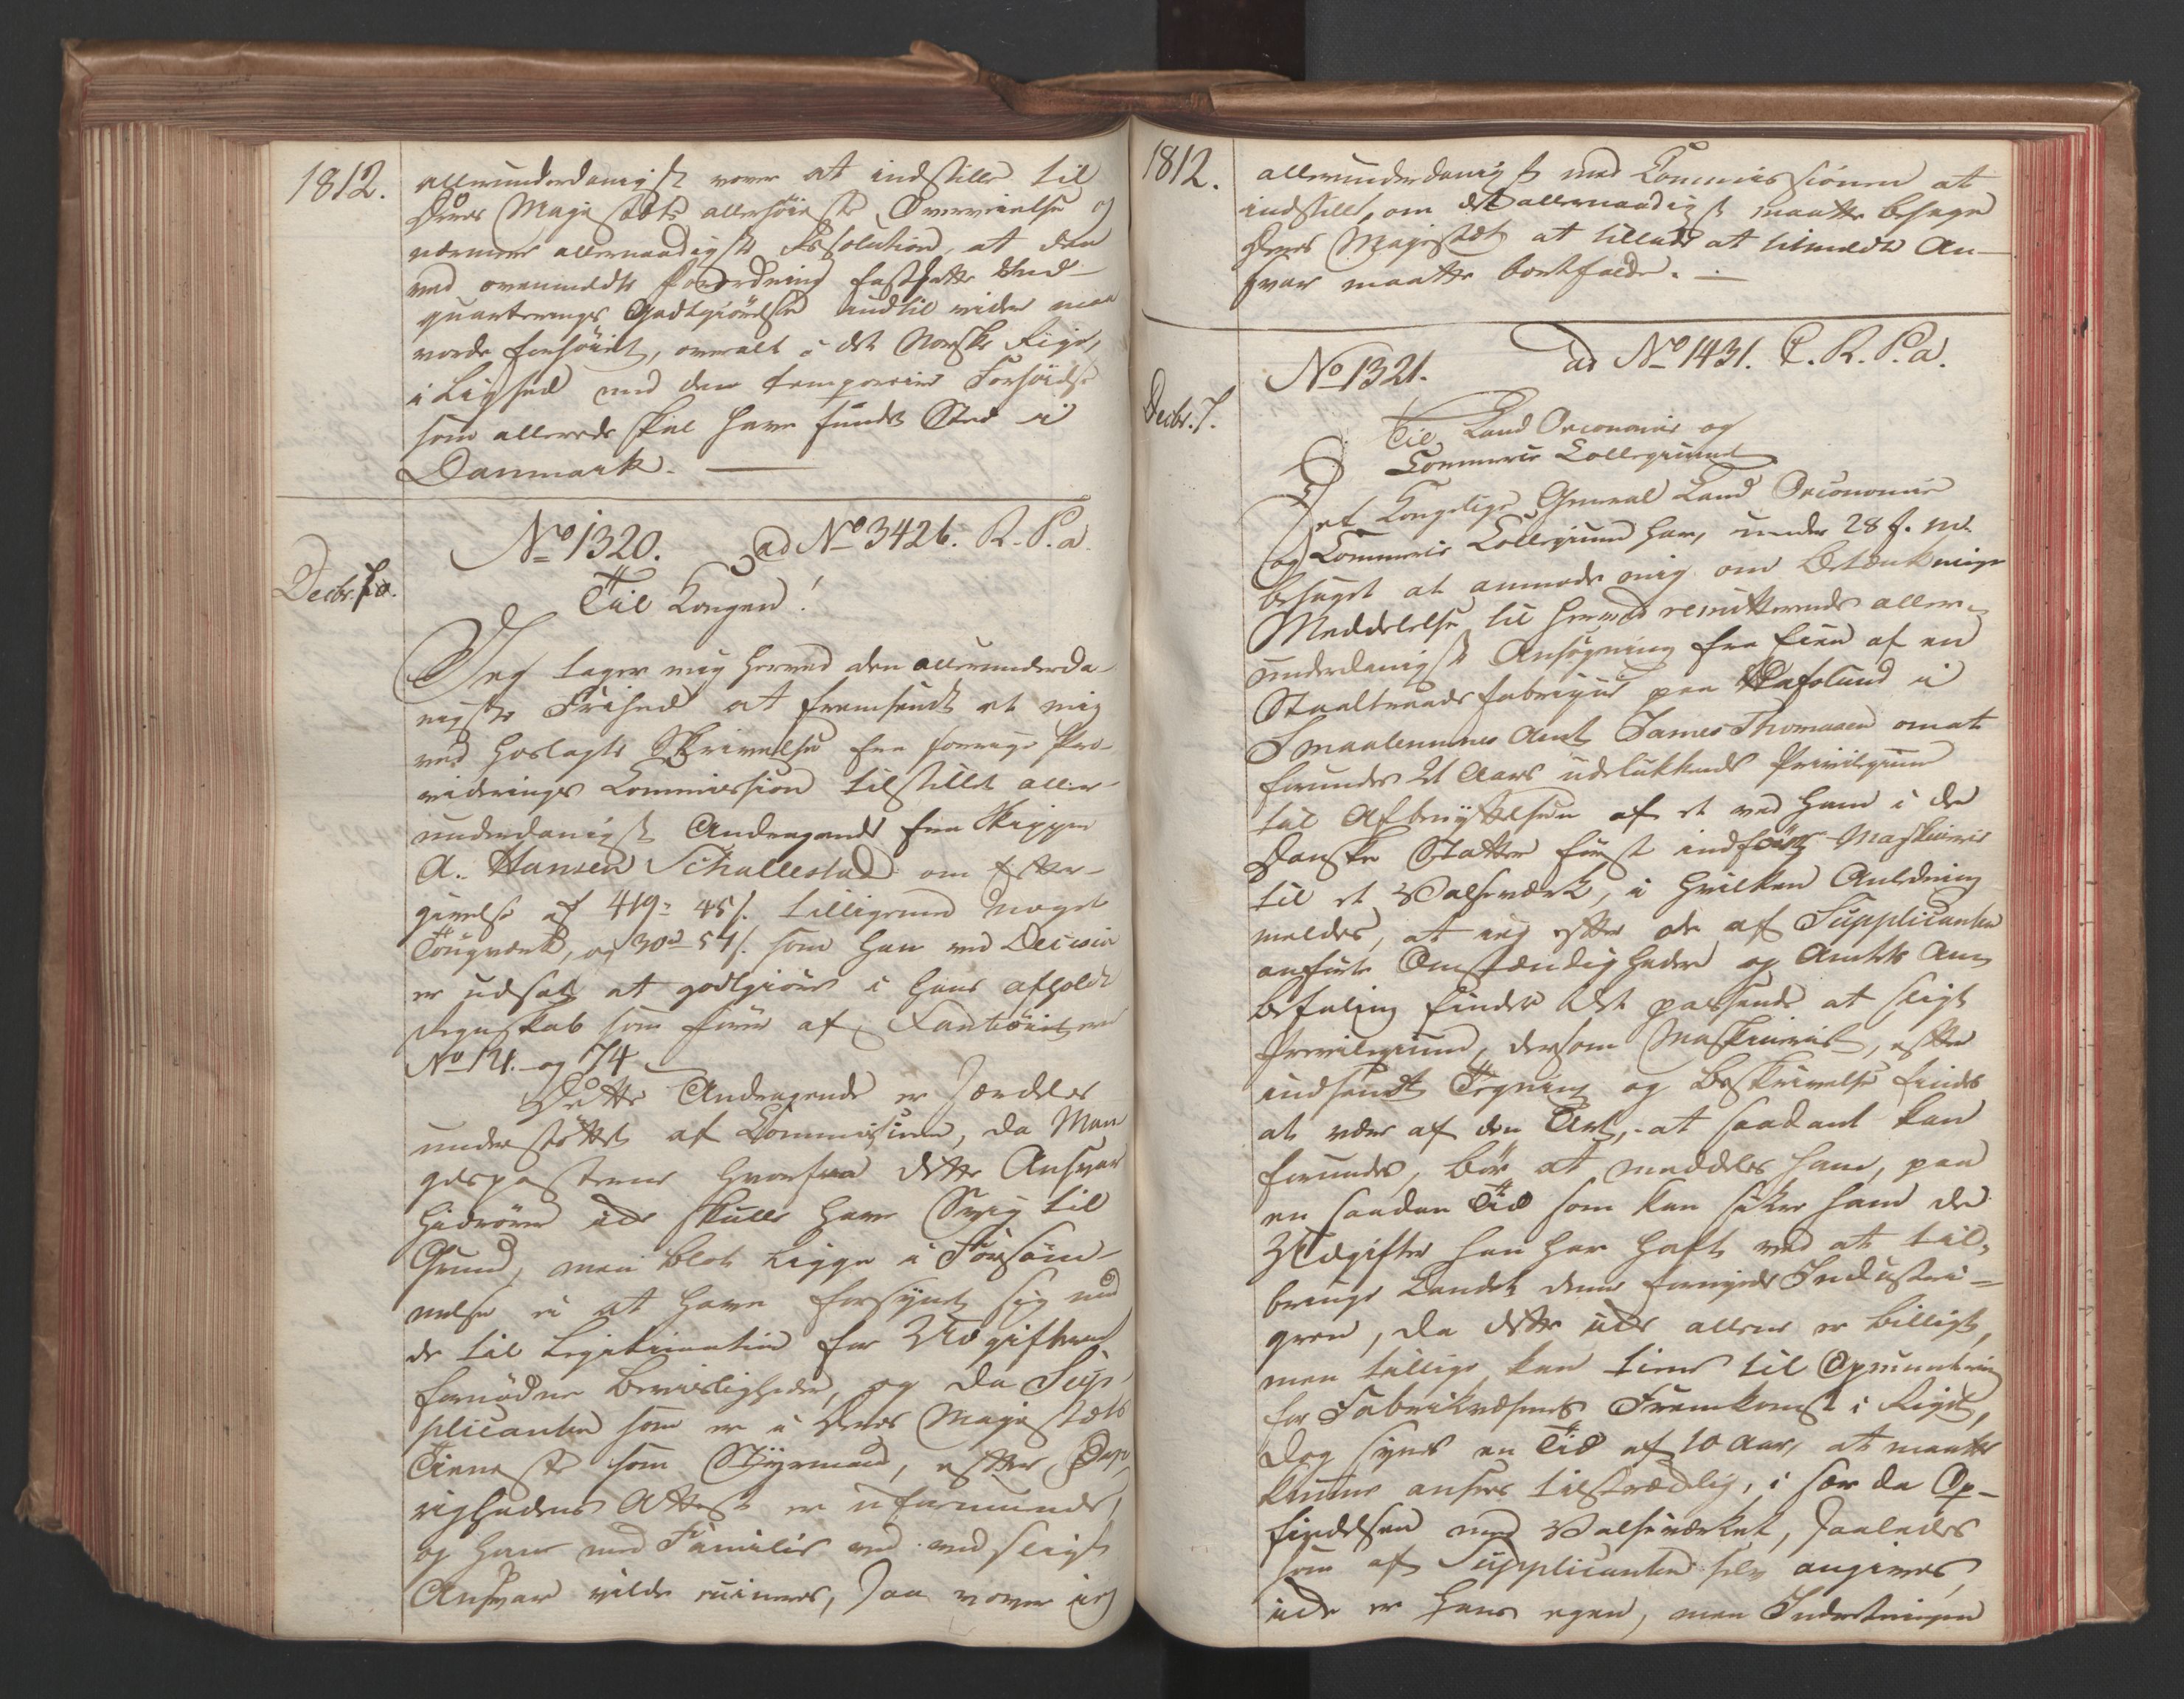 1812.
allerunderdanigst vover at indstille til
Deres Majestæts allerhøieste Overveielse og
nærmere allernaadigste Resolution, at den
ved ovenmeldte Forordning fastsatte Ind-
quarterings Godtgiørelse indtil videre maa
vorde forhøiet, overalt i det Norske Rige,
i Lighed med den temporaire Forhøielse
som allerede skal have fundet Sted i
Danmark.
No 1320. ad No 3426. R. P. a.
Decbr. 7
Til Kongen!
Jeg tager mig herved den allerunderda-
nigste Frihed at fremsende et mig
med hoslagte Skrivelse fra forrige Pro-
viderings Commission tilstillet aller-
underdanigst Andragende fra Skipper
A. Hansen Schallestad om Efter-
givelse af 419 45 s. tilligemed noget
Tougværk, og 30 rd 54 s. som han ved Decision
er udsat at godtgiøre i hans afholdte
Regnskab som fører af
No 14. og 74
Dette Andragende er særdeles
understøttet af Commissionen, da Man-
gelsposterne hvorfra dette Ansvar
hidrører ikke skulle have Svig til
Grund, men blot ligge i Forsøm-
melse i at have forsynet sig med
de til Legitimation for Udgifterne
fornødne Beviisligheder, og da Sup-
plicanten som er i Deres Majestæts
Tieneste som Styrmand, efter Øv-
righedens Attest er uformuende,
og han med Familie ved sligt
Ansvar vilde ruineres, saa vover jeg
1812.
allerunderdanigst med Commissionen at
indstille, om det allernaadigst maatte behage
Deres Majestæt at tillade at bemeldte An-
svar maatte bortfalde.
No 1321. ad No 1431. C. R. P. a.
Decbr. 7.
Til Land Oeconomie og
Commerce Collegiumet
Det Kongelige General Land Oeconomie
og Commerce Collegium har, under 28 f. M.
behaget at anmode mig om Betænknings
Meddelelse til herved remitterende aller-
underdanigst Ansøgning fra Eier af en
Staaltraads fabrique paa Hafslund i
Smaalennenes Amt James Thomasen om at
forundes 21 Aars udelukkende Privilegium
til Afbenyttelsen af et ved ham i de
Danske Stater først indført Maskinerie
til et Valseværk, i hvilken Anledning
meldes, at jeg efter de af Supplicanten
anførte Omstændigheder og Amtets An-
befaling finder det passende at sligt
Privilegium, dersom Maskineriet, efter
indsendt Tegning og Beskrivelse findes
at være af den Art, at saadant kan
forundes, bør at meddeles ham, paa
en saadan Tid som kan sikre ham de
Udgifter han har haft ved at til-
bringe Landet denne fornyede Industrie-
green, da dette ikke allene er billigt,
men tillige kan tiene til Opmuntring
for Fabrikvæsenets Fremkomst i Riget,
dog synes en Tid af 10 Aar, at maatte
kunne ansees tilstrækkelig, i sær da Op-
findelsen med Valseværket, saaledes
som af Supplicanten selv angives,
ikke er hans egen, men Indretningen